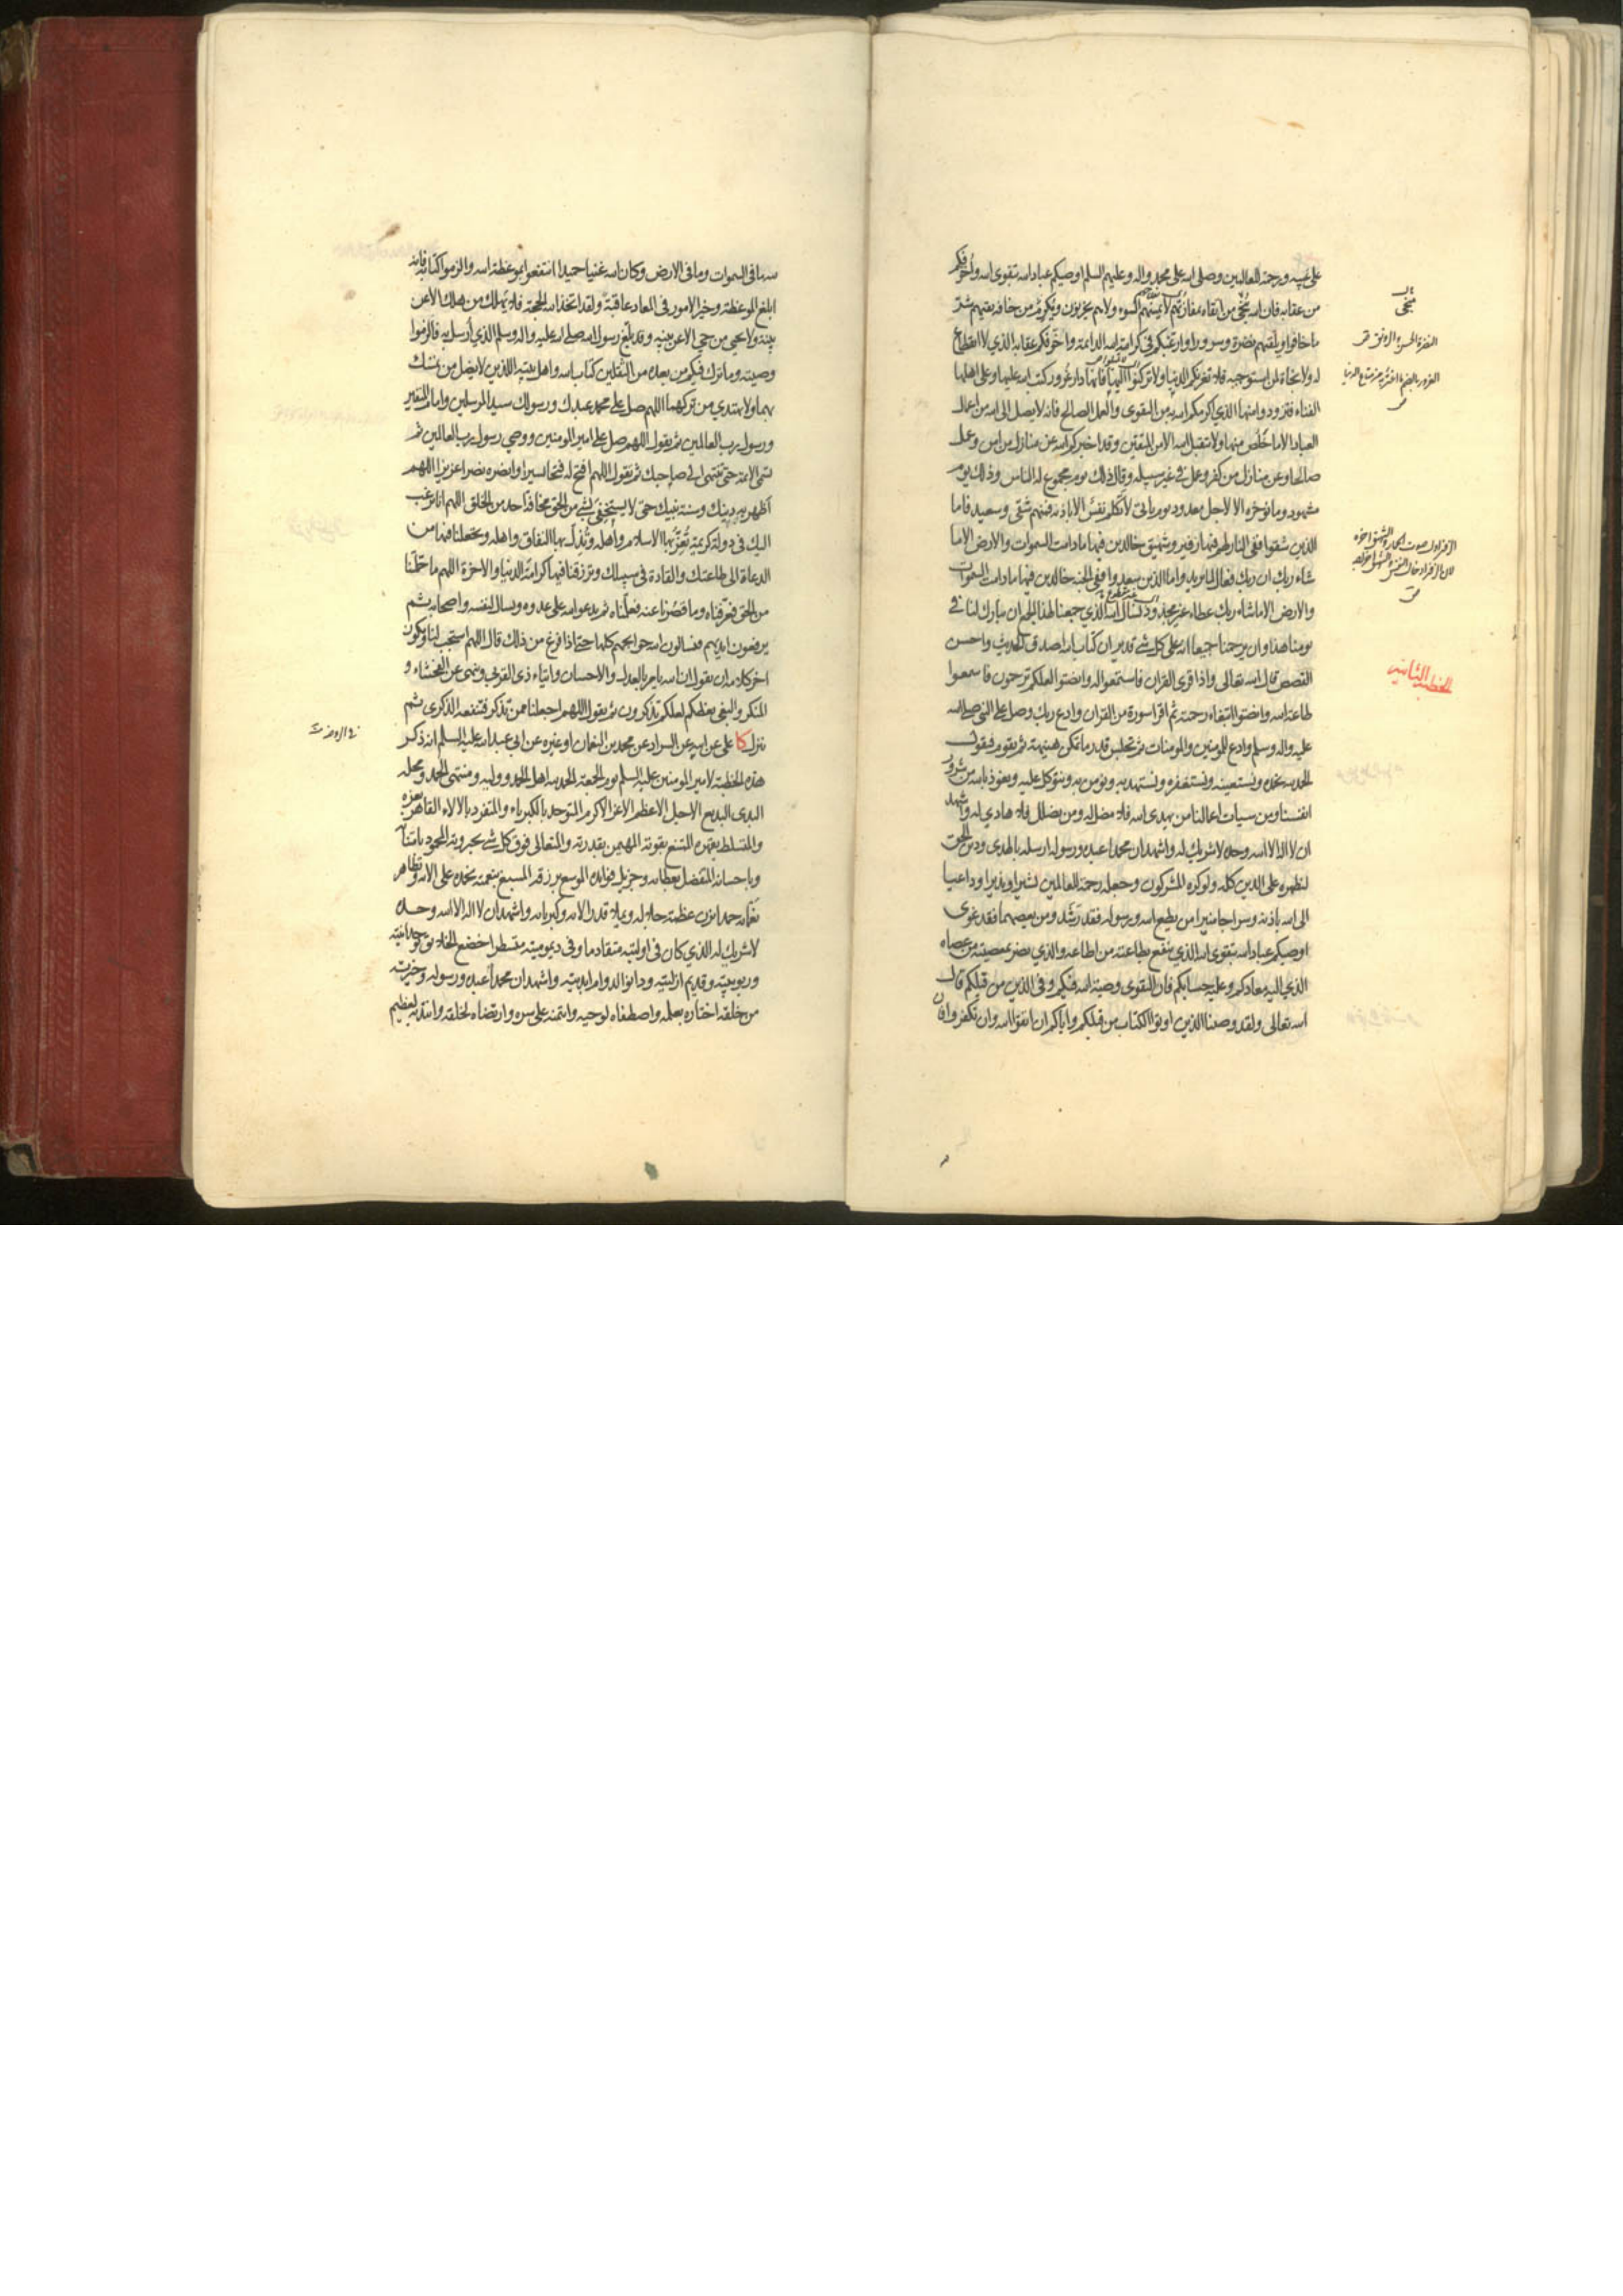 على غيبه ورحمة للعالمين وصلى الله على محمد واله وعليهم السلم اوصيكم عباد الله بتقوى الله واخوفكم
من عقابه فان الله ينجي من اتقاه بمفازتهم لا يمسهم السوء ولا هم يحزنون ويكرم من خافه يقيهم شر
ما خافوا ويلقيهم نضرة وسرورا وارغبكم في كرامة الله الدائمة واخوفكم عقابه الذي لا انقطاع
له ولا نجاة لمن استوجبه فلا تغرنكم الدنيا ولا تركنوا اليها فانها دار غرور كتب الله عليها وعلى اهلها
الفناء فتزودوا منها الذي اكرمكم الله به من التقوى والعمل الصالح فانه لا يصل الى الله من اعمال
العباد الا ما خلص منها ولا يتقبل الله الا من المتقين وقد اخبركم الله عن منازل من امن وعمل
صالحا وعن منازل من كفر وعمل في غير سبيله وقال ذلك يوم مجموع له الناس وذلك يوم
مشهود وما نؤخره الا لاجل معدود يوم ياتي لا تكلم نفس الا باذنه فمنهم شقي وسعيد فاما
الذين شقوا ففي النار لهم فيها زفير وشهيق خالدين فيها ما دامت السموات والارض الا ما
شاء ربك ان ربك فعال لما يريد واما الذين سعدوا ففي الجنة خالدين فيها ما دامت السموات
والارض الا ما شاء ربك عطاء غير مجذوذ نسال الله الذي جمعنا لهذا الجمع ان يبارك لنا في
يومنا هذا وان يرحمنا جميعا انه على كل شي قدير ان كتاب الله اصدق الحديث واحسن
القصص قال الله تعالى واذا قرى القران فاستمعوا له وانصتوا لعلكم ترحمون فاسمعوا
طاعة الله وانصتوا ابتغاء رحمته ثم اقرا سورة من القران وادع ربك وصل على النبي صلى الله
عليه واله وسلم وادع للمومنين والمومنات ثم تجلس قدر ما تمكن هنيهة ثم تقوم فتقول
الحمد لله نحمده ونستعينه ونستغفره ونستهديه ونومن به ونتوكل عليه ونعوذ بالله من شرور
انفسنا ومن سيات اعمالنا من يهدي الله فلا مضل له ومن يضلل فلا هادي له واشهد
ان لا اله الا الله وحده لا شريك له واشهد ان محمدا عبده ورسوله ارسله بالهدى ودين الحق
ليظهره على الدين كله ولو كره المشركون وجعله رحمة للعالمين بشيرا ونذيرا وداعيا
الى الله باذنه وسراجا منيرا من يطع الله ورسوله فقد رشد ومن يعصهما فقد غوى
اوصيكم عباد الله بتقوى الله الذي ينفع بطاعته من اطاعه والذي يضر بمعصيته من عصاه
الذي اليه معادكم وعليه حسابكم فان التقوى وصية الله فيكم وفي الذين من قبلكم قال
الله تعالى ولقد وصينا الذين اوتوا الكتاب من قبلكم واياكم ان اتقوا الله وان تكفروا فان
ينجي
الغرور بالضم ما اغتر به من متاع الدنيا
الخطبة الثانية
لله ما في السموات وما في الارض وكان الله غنيا حميدا انتفعوا بموعظة الله والزموا كتابه فانه
ابلغ الموعظة وخير الامور في المعاد عاقبة ولقد اتخذ الله الحجة فلا يهلك من هلك الا عن
بينة ولا يحيى من حي الا عن بينة وقد بلغ رسول الله صلى الله عليه واله وسلم الذي ارسل به فالزموا
وصيته وما ترك فيكم من بعده من الثقلين كتاب الله واهل بيته اللذين لا يضل من تمسك
بهما ولا يهتدي من تركهما اللهم صل على محمد عبدك ورسولك سيد المرسلين وامام المتقين
ورسول رب العالمين ثم يقول اللهم صل على امير المومنين ووصي رسول رب العالمين ثم
تسمي الائمة حتى تنتهي الى صاحبك ثم تقول اللهم افتح له فتحا يسيرا وانصره نصرا عزيزا اللهم
اظهر به دينك وسنة نبيك حتى لا يستخفي بشي من الحق مخافة احد من الخلق اللهم انا نرغب
اليك في دولة كريمة تعز بها الاسلام واهله وتذل بها النفاق واهله وتجعلنا فيها من
الدعاة الى طاعتك والقادة في سبيلك وترزقنا فيها كرامة الدنيا والاخرة اللهم ما حملتنا
من الحق فعرفناه وما قصرنا عنه فعلمناه ثم يدعو الله على عدوه ويسال لنفسه واصحابه ثم
يرفعون ايديهم فيسالون الله حوائجهم كلها حتى اذا فرغ من ذلك قال اللهم استجب لنا ويكون
اخر كلامه ان يقول ان الله يامر بالعدل والاحسان وايتاء ذي القربى وينهى عن الفحشاء و
المنكر والبغي يعظكم لعلكم تذكرون ثم يقول اللهم اجعلنا ممن تذكر فتنفعه الذكرى ثم
ينزل كا على عن ابيه عن السراد عن محمد بن النعمان او غيره عن ابي عبد الله عليه السلم انه ذكر
هذه الخطبة لامير المومنين عليه السلم يوم الجمعة الحمد لله اهل الحمد ووليه ومنتهى الحمد ومحله
البدئ البديع الاجل الاعظم الاعز الاكرم المتوحد بالكبرياء والمتفرد بالالاء القاهر بعزه
والمتسلط بقهره الممتنع بقوته المهيمن بقدرته والمتعالي فوق كل شي بجبروته المحمود بامتنانه
وباحسانه المتفضل بعطائه وجزيل فوائده الموسع برزقه المسبغ بنعمته نحمده على الائه وتظاهر
نعمائه حمدا يزن عظمة جلاله ويملا قدر الائه وكبريائه واشهد ان لا اله الا الله وحده
لا شريك له الذي كان في اوليته متقادما وفي ديموميته متسيطرا خضع الخلائق لوحدانيته
وربوبيته وقديم ازليته ودانوا لدوام ابديته واشهد ان محمدا عبده ورسوله وخيرته
من خلقه اختاره بعلمه واصطفاه لوحيه وائتمنه على سره وارتضاه لخلقه وانتدبه لعظيم